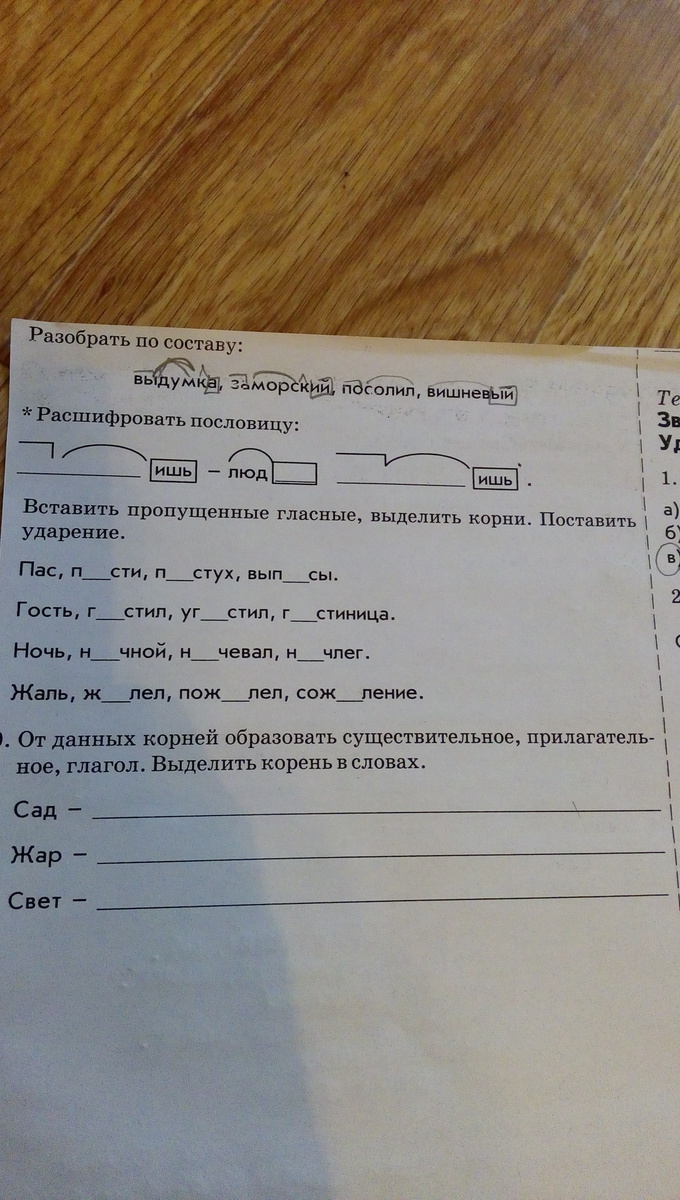 Разобрать по составу:
выдумка, заморский, посолил, вишневый
* Расшифровать пословицу:
ишь – люд ишь .
Вставить пропущенные гласные, выделить корни. Поставить
ударение.
Пас, п__сти, п__стух, вып__сы.
Гость, г__стил, уг__стил, г__стиница.
Ночь, н__чной, н__чевал, н__члег.
Жаль, ж__лел, пож__лел, сож__ление.
. От данных корней образовать существительное, прилагатель-
ное, глагол. Выделить корень в словах.
Сад –
Жар –
Свет –
Те
Зв
Уд
1.
а)
б)
в)
2